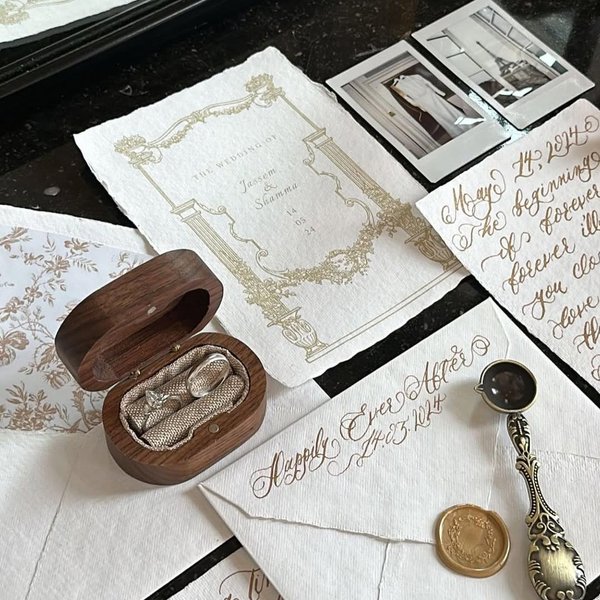 THE WEDDING OF
Jassem
&
Shamma
14
05
24
May 14, 2024
The beginning
of forever
forever
you
love
Happily Ever After
14.05.2024